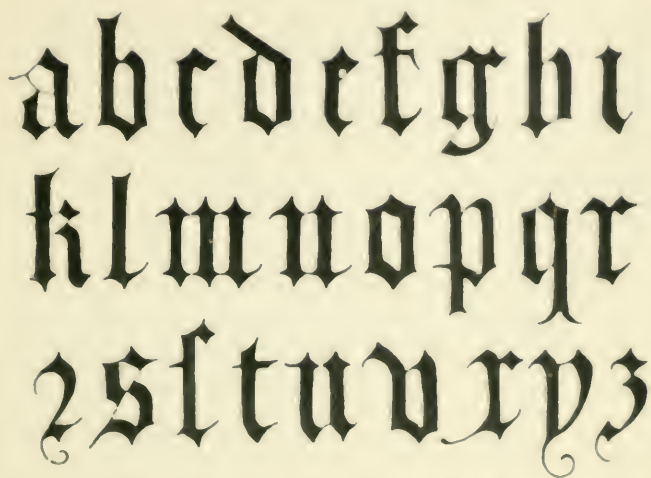 abcdefghı
klmnopqr
ꝛsſtuvxyz